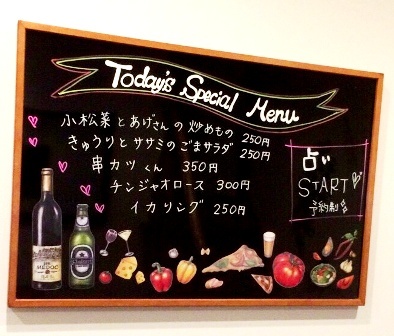 Today's Special Menu
小松菜とあげさんの炒めもの 250円
きゅうりとササミのごまサラダ 250円
串カツくん 350円
チンジャオロース 300円
イカリング 250円
占い
START
予約制
MEDOC